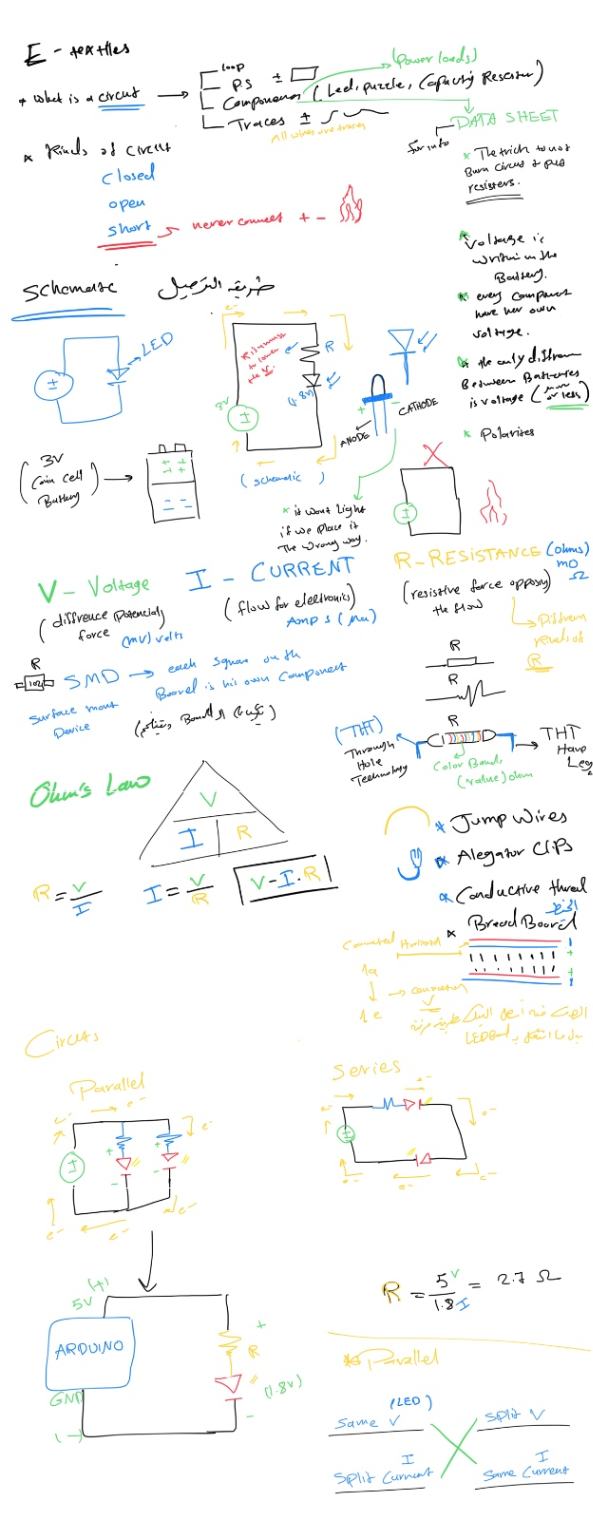 E - textiles
* What is a circut → loop
P.S ±
Components (Led, puzzle, Capacity Resester)
(Power loads)
Traces ±
All wires are traces
DATA SHEET
for info
* The trick to not
Burn circut is put
resisters.
* Kinds of circut
closed
open
short → never connect + -
* Voltage is
written in the
Battery.
* every component
have her own
voltage.
* the only diffrence
Between Batteries
is voltage (more or less)
* Polarites
Schematic
طريقة التوصيل
LED
±
e-
R
3V
(1.8v)
±
(schematic)
ANODE
CATHODE
+
-
(3V
coin cell
Battery)
+ +
+ +
- -
* it wont Light
if we place it
the wrong way.
X
±
V - Voltage
(diffrence potencial)
force (mv) volts
I - CURRENT
(flow for electronics)
Amp s
R - RESISTANCE (ohms)
mΩ
Ω
(resistive force opposing
the flow)
Diffrent
R
R
102
SMD → each square on the
Board is his own Component
Surface mount
Device
R
R
R
(THT)
Through
Hole
Technology
Color Band
(value) ohm
THT
Have
Leg
Ohm's Law
V
I R
R = V/I
I = V/R
V = I . R
* Jump Wires
* Alegator Clips
* Conductive thread
الخيط
* Bread Board
Connected
1a
1e
- connection
+
+
Circuts
Parallel
e-
±
+
-
Series
e-
±
5V (+)
ARDUINO
GND
(-)
R
+
(1.8v)
-
R = 5 V / 1.8 I = 2.7 Ω
* Parallel
Same V (LED)
Split V
Split Current I
Same Current I